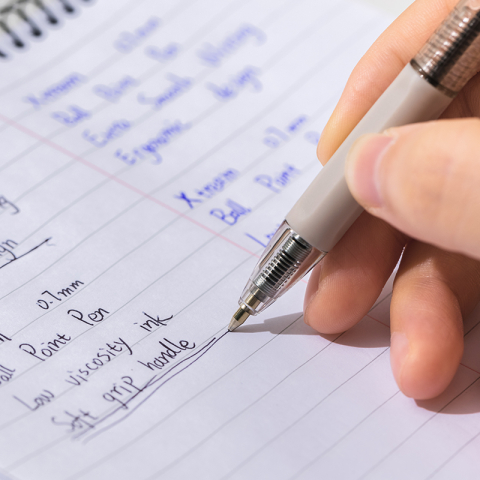 Xtmam 0.5mm
Ball Point Pen
Extra Smooth Writing
Ergonomic design
Xtmam 0.7mm
Ball Point
0.7mm
Point Pen
Low viscosity ink
Soft grip handle